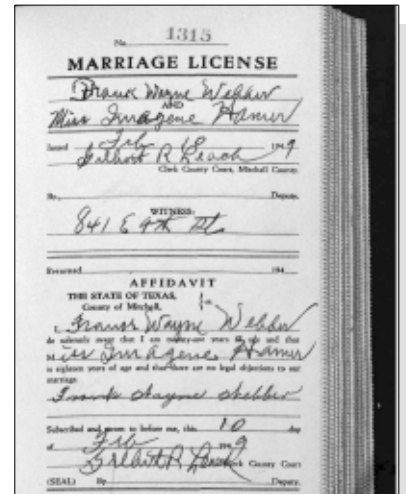 No. 1315
MARRIAGE LICENSE
Frank Wayne Webber
AND
Miss Imagene Hamer
Issued Feb 18 1949
Gilbert R Leach
Clerk County Court, Mitchell County.
By Deputy.
WITNESS:
841 E 9th St
Returned 194
AFFIDAVIT
THE STATE OF TEXAS,
County of Mitchell,
I, Frank Wayne Webber
do solemnly swear that I am twenty-one years of age and that
Miss Imagene Hamer
is eighteen years of age and that there are no legal objections to our
marriage.
Frank Wayne Webber
Subscribed and sworn to before me, this 10 day
of Feb 1949
Gilbert R Leach Clerk County Court
(SEAL) By Deputy.